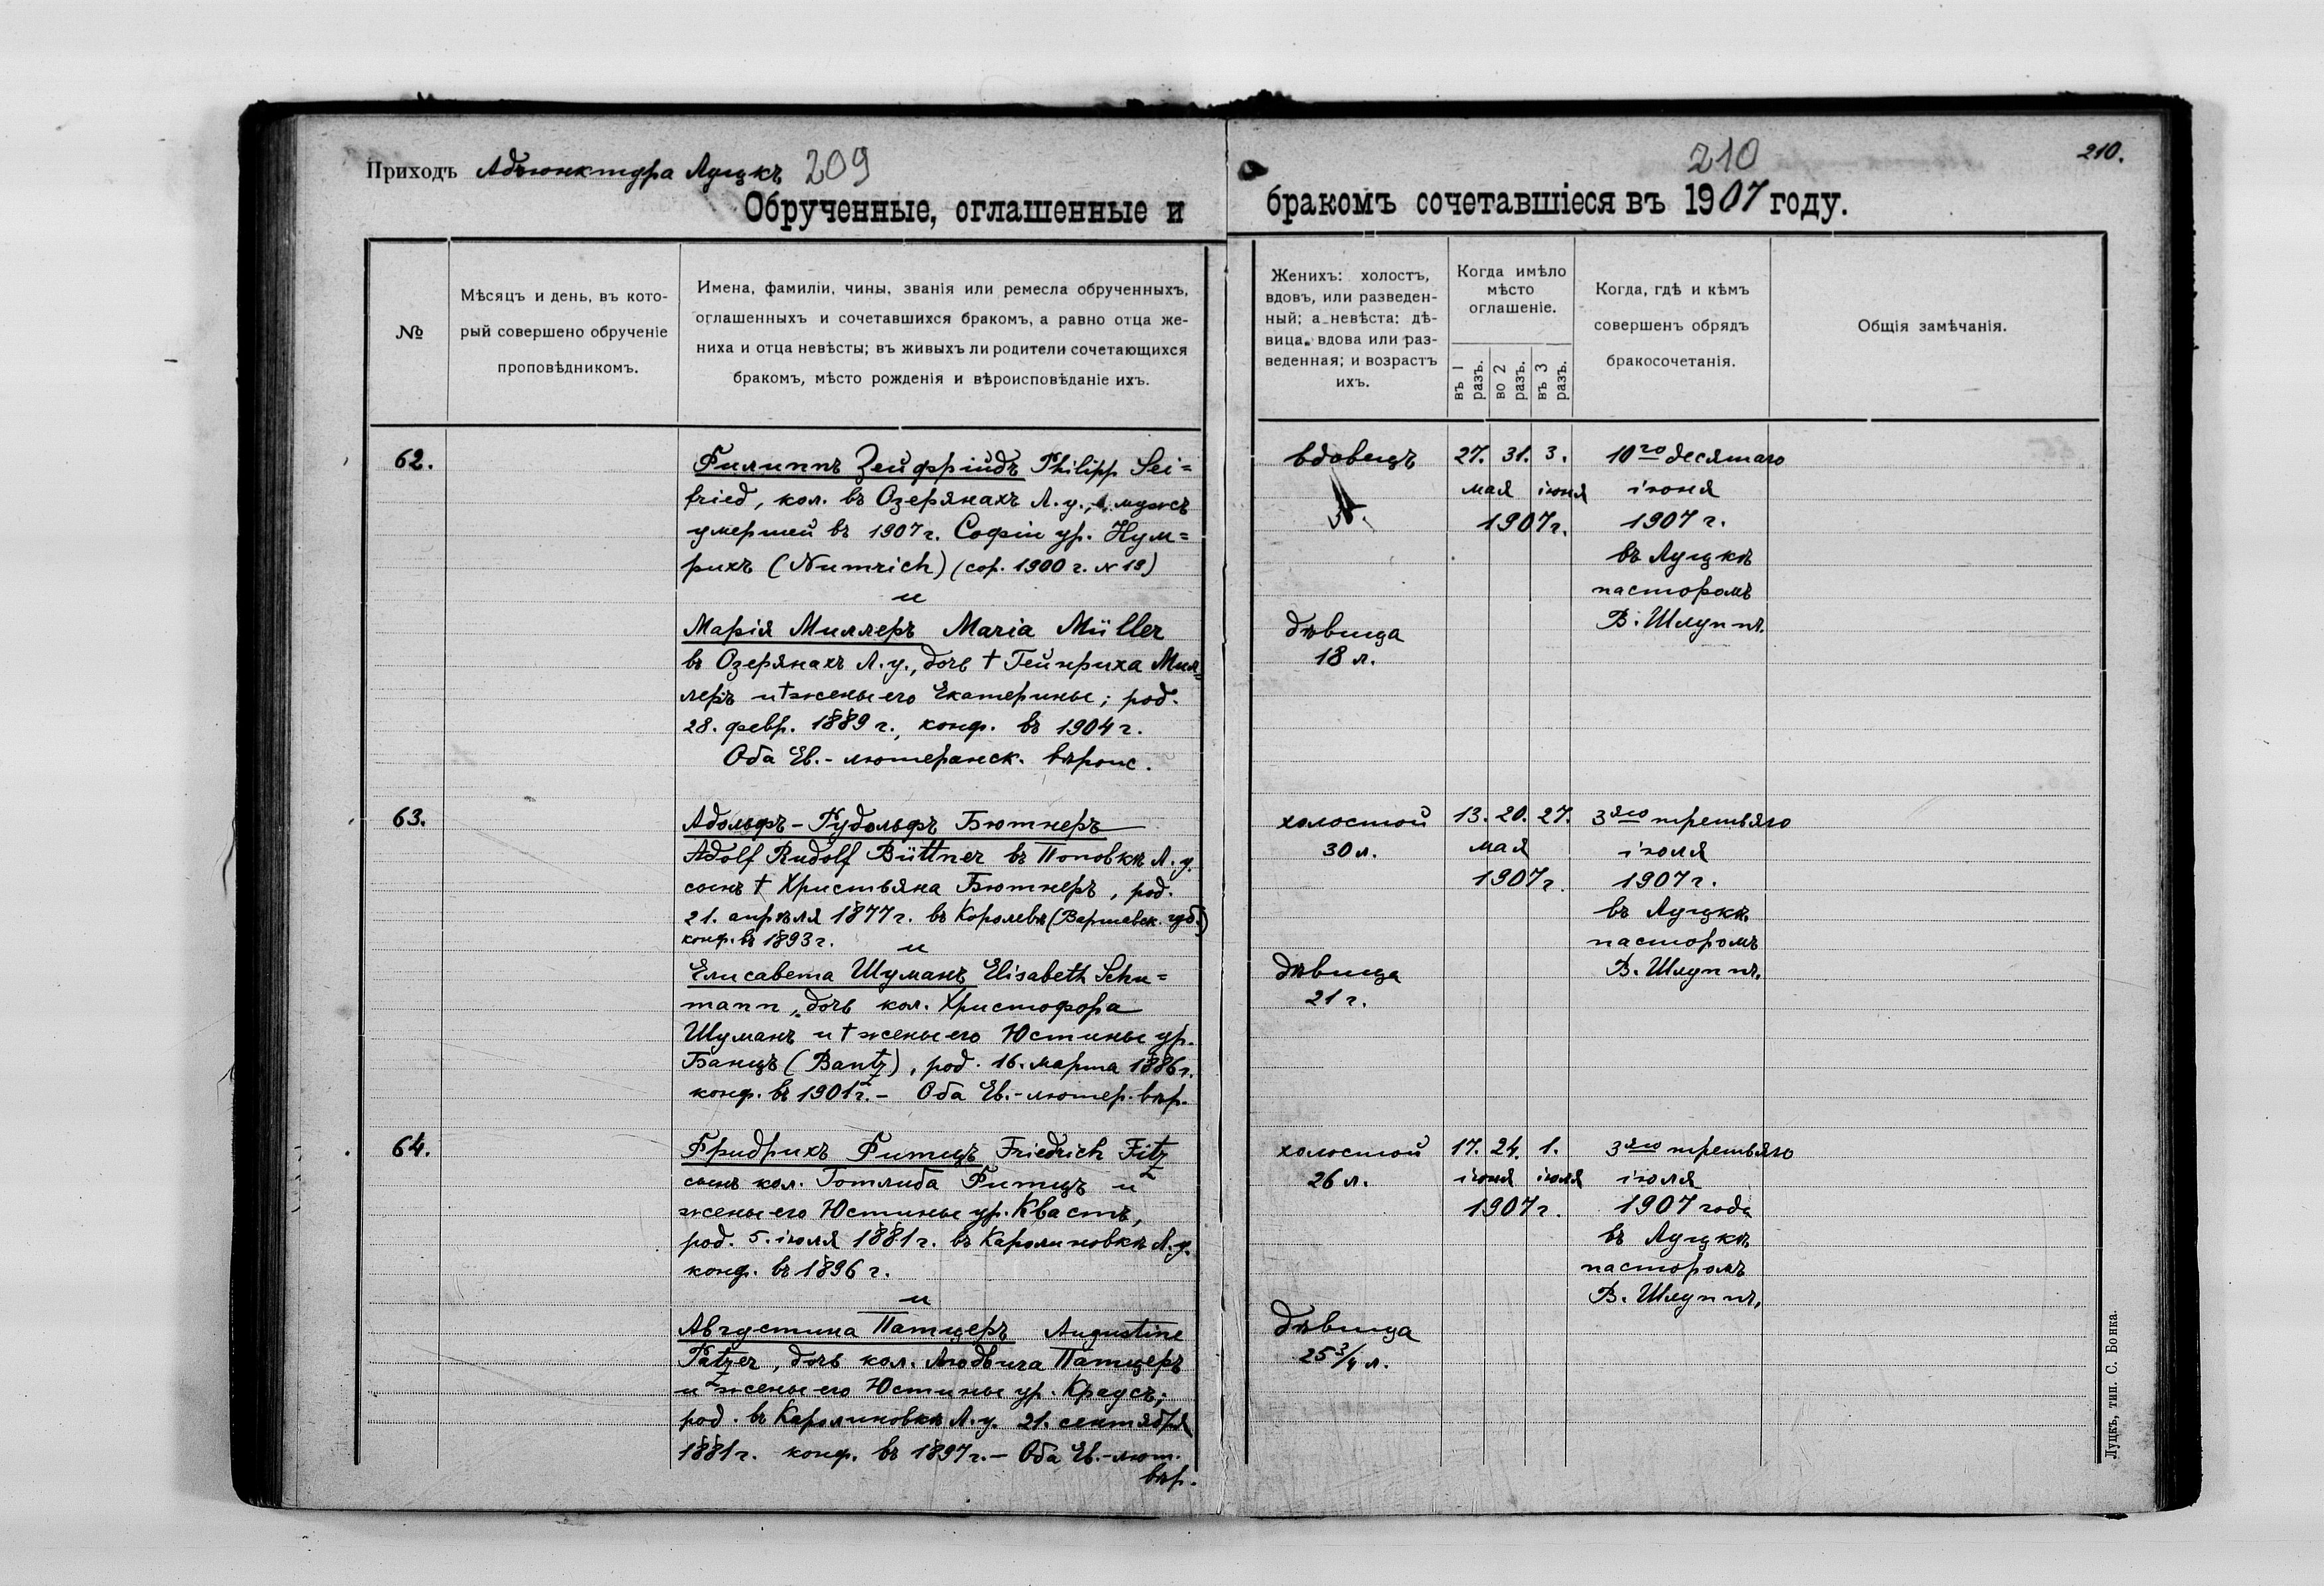 Приходъ Адъюнктура Луцкъ 209
Обрученные, оглашенные и
№
Мѣсяцъ и день, въ кото-
рый совершено обрученіе
проповѣдникомъ.
Имена, фамиліи, чины, званія или ремесла обрученныхъ,
оглашенныхъ и сочетавшихся бракомъ, а равно отца же-
ниха и отца невѣсты; въ живыхъ ли родители сочетающихся
бракомъ, мѣсто рожденія и вѣроисповѣданіе ихъ.
62.
Филиппъ Зейфрiидъ Philipp Sei=
fried, кол. въ Озерянахъ Л. у., мужъ
умершей въ 1907 г. Софiи ур. Нум=
рихъ (Numrich) (сор. 1900 г. N 19)
и
Марія Миллеръ Maria Müller
въ Озерянахъ Л. у., дочь † Гейнриха Мил=
леръ и † жены его Екатерины; род.
28. февр. 1889 г., конф. въ 1904 г.
Оба Ев.-лютеранск. вѣроис.
63.
Адольфъ-Рудольфъ Бютнеръ
Adolf Rudolf Büttner въ Поповкѣ Л. у.
сынъ † Христьяна Бютнеръ, род.
21. апрѣля 1877 г. въ Королевѣ (Варшавск. губ.)
конф. въ 1893 г.
и
Елисавета Шуманъ Elisabeth Schu=
mann, дочь кол. Христофора
Шуманъ и † жены его Юстины ур.
Банцъ (Bantz), род. 16. марта 1886 г.
конф. въ 1901 г. - Оба Ев.-лютер. вѣр.
64.
Фридрихъ Фитцъ Friedrich Fitz
сынъ кол. Готлиба Фитцъ и
жены его Юстины ур. Квастъ,
род. 5. іюля 1881 г. въ Каролиновкѣ Л. у.
конф. въ 1896 г.
и
Августина Патцеръ Augustine
Patzer, дочь кол. Людвига Патцеръ
и жены его Юстины ур. Краусъ;
род. въ Каролиновкѣ Л. у. 21. сентября
1881 г. конф. въ 1897 г. - Оба Ев.-лют.
вѣр.
210
210.
бракомъ сочетавшіеся въ 1907 году.
Женихъ: холостъ,
вдовъ, или разведен-
ный; а невѣста: дѣ-
вица, вдова или раз-
веденная; и возрастъ
ихъ.
Когда имѣло
мѣсто
оглашеніе.
въ 1 разъ.
во 2 разъ.
въ 3 разъ.
Когда, гдѣ и кѣмъ
совершенъ обрядъ
бракосочетанія.
Общія замѣчанія.
вдовецъ 27. 31. 3. 10го десятаго
мая іюня іюня
1907 г. 1907 г.
въ Луцкѣ
пасторомъ
В. Шлуппъ.
дѣвица
18 л.
холостой 13. 20. 27. 3яго третьяго
30 л. мая іюля
1907 г. 1907 г.
въ Луцкѣ
пасторомъ
В. Шлуппъ.
дѣвица
21 г.
холостой 17. 24. 1. 3яго третьяго
26 л. іюня іюля іюля
1907 г. 1907 года
въ Луцкѣ
пасторомъ
В. Шлуппъ.
дѣвица
25 3/4 л.
Луцкъ, тип. С. Бонка.